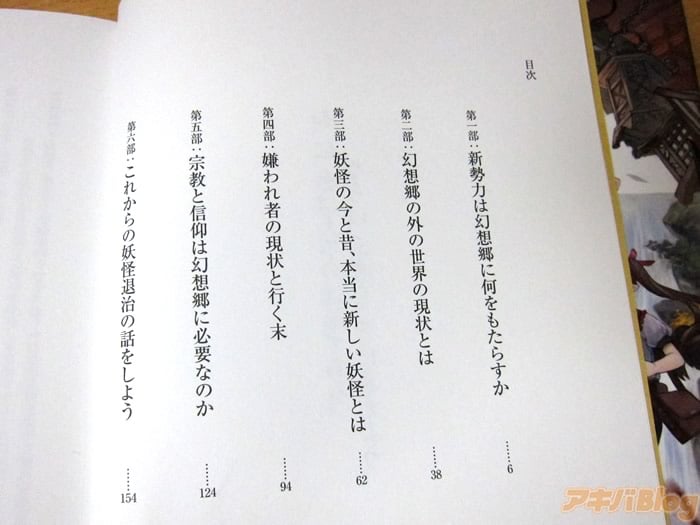 目次
第一部：新勢力は幻想郷に何をもたらすか ……6
第二部：幻想郷の外の世界の現状とは ……38
第三部：妖怪の今と昔、本当に新しい妖怪とは ……62
第四部：嫌われ者の現状と行く末 ……94
第五部：宗教と信仰は幻想郷に必要なのか ……124
第六部：これからの妖怪退治の話をしよう ……154
アキバBlog